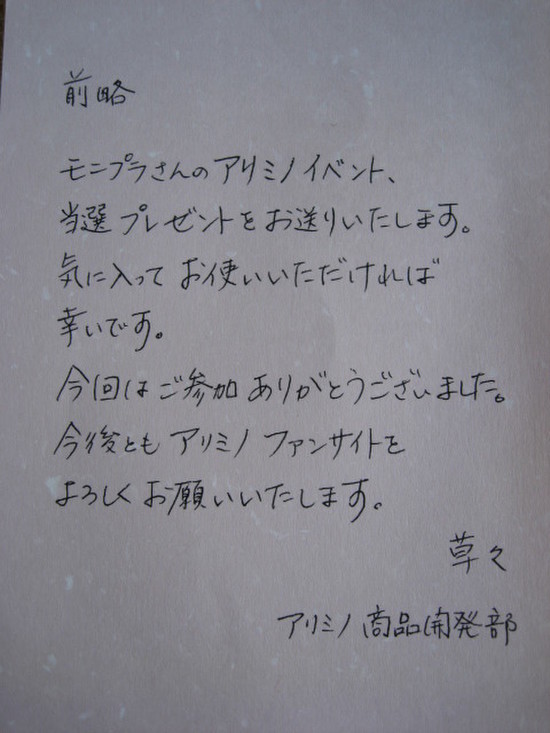 前略
モニプラさんのアリミノイベント、
当選プレゼントをお送りいたします。
気に入ってお使いいただければ
幸いです。
今回はご参加ありがとうございました。
今後ともアリミノファンサイトを
よろしくお願いいたします。
草々
アリミノ商品開発部